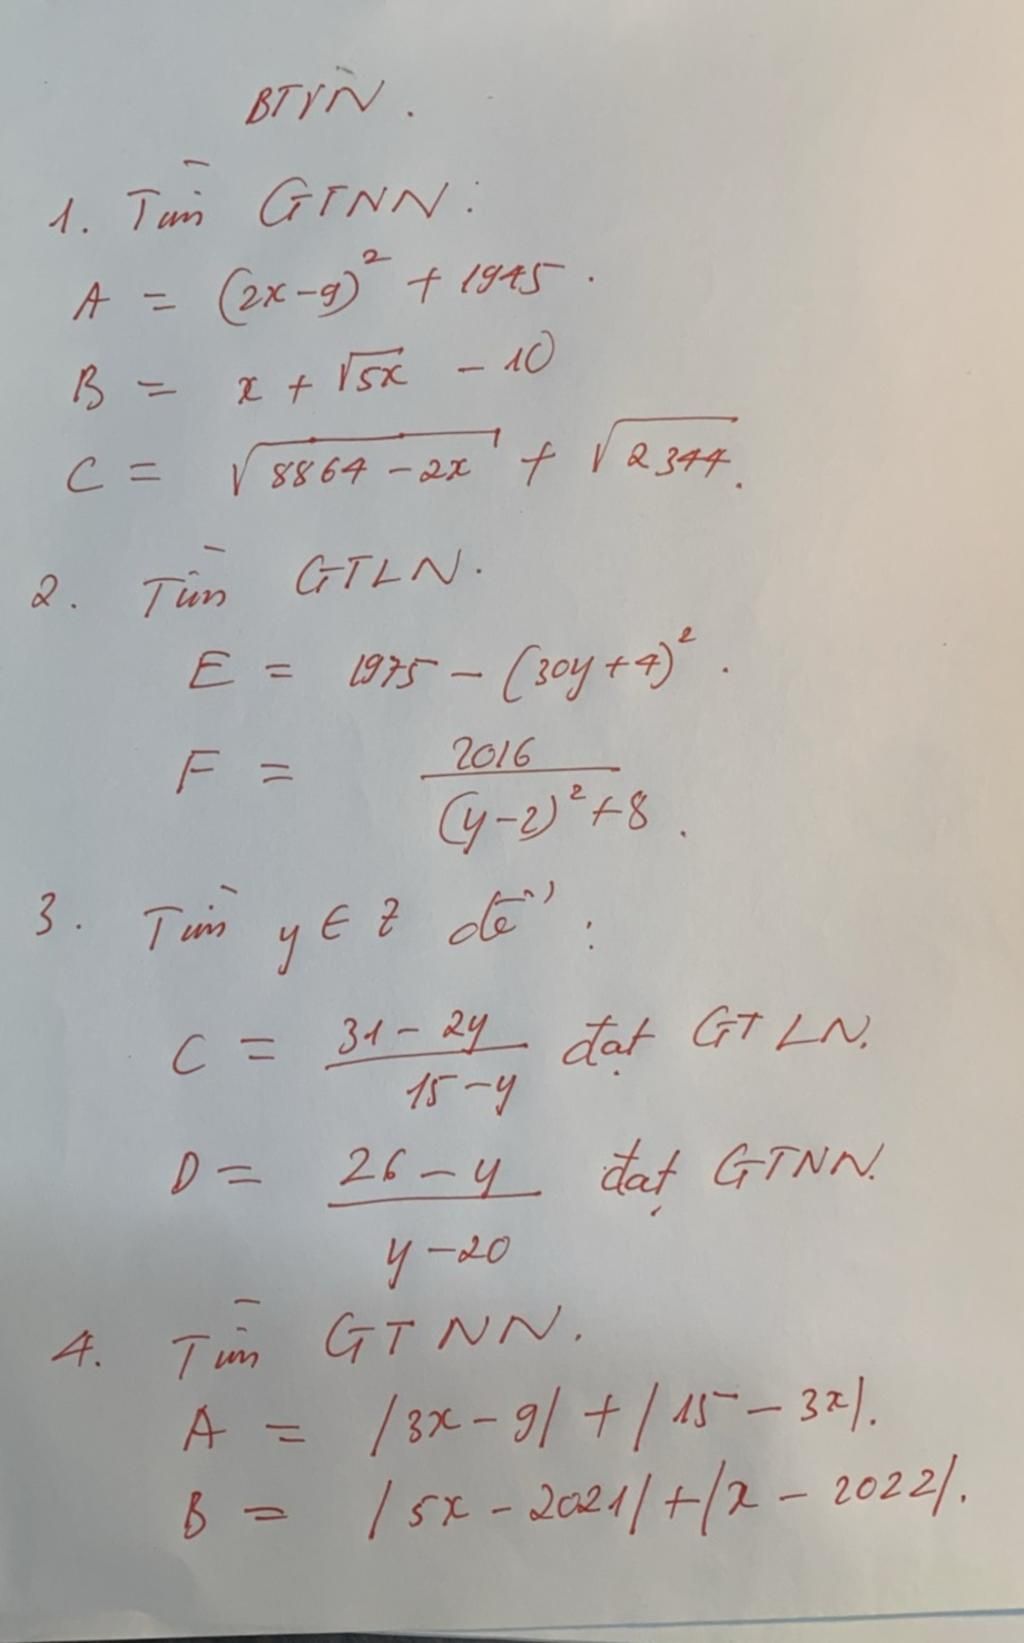 BTVN.
1. Tìm GTNN:
A = (2x-9)² + 1945.
B = x + √5x - 10
C = √8864-2x + √2344.
2. Tìm GTLN.
E = 1975 - (30y+4)².
F = 2016
(y-2)²+8.
3. Tìm y ∈ Z để:
C = 31-2y đạt GTLN.
15-y
D = 26-y đạt GTNN.
y-20
4. Tìm GTNN.
A = |3x-9| + |15-3x|.
B = |5x-2021| + |x-2022|.